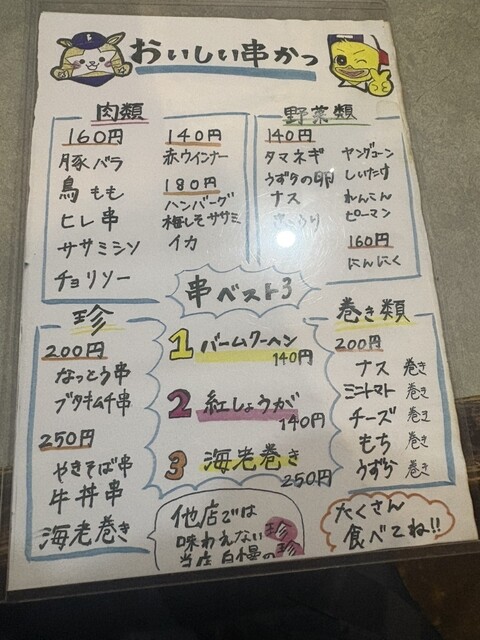 おいしい串かつ
肉類
160円
豚バラ
鳥もも
ヒレ串
ササミシソ
チョリソー
140円
赤ウインナー
180円
ハンバーグ
梅しそササミ
イカ
野菜類
140円
タマネギ
うずらの卵
ナス
ヤングコーン
しいたけ
れんこん
ピーマン
160円
にんにく
串ベスト3
1 バームクーヘン
140円
2 紅しょうが
140円
3 海老巻き
250円
珍
200円
なっとう串
ブタキムチ串
250円
やきそば串
牛丼串
海老巻き
巻き類
200円
ナス 巻き
ミニトマト 巻き
チーズ 巻き
もち 巻き
うずら 巻き
他店では
味わえない
当店自慢の
珍
珍
たくさん
食べてね!!